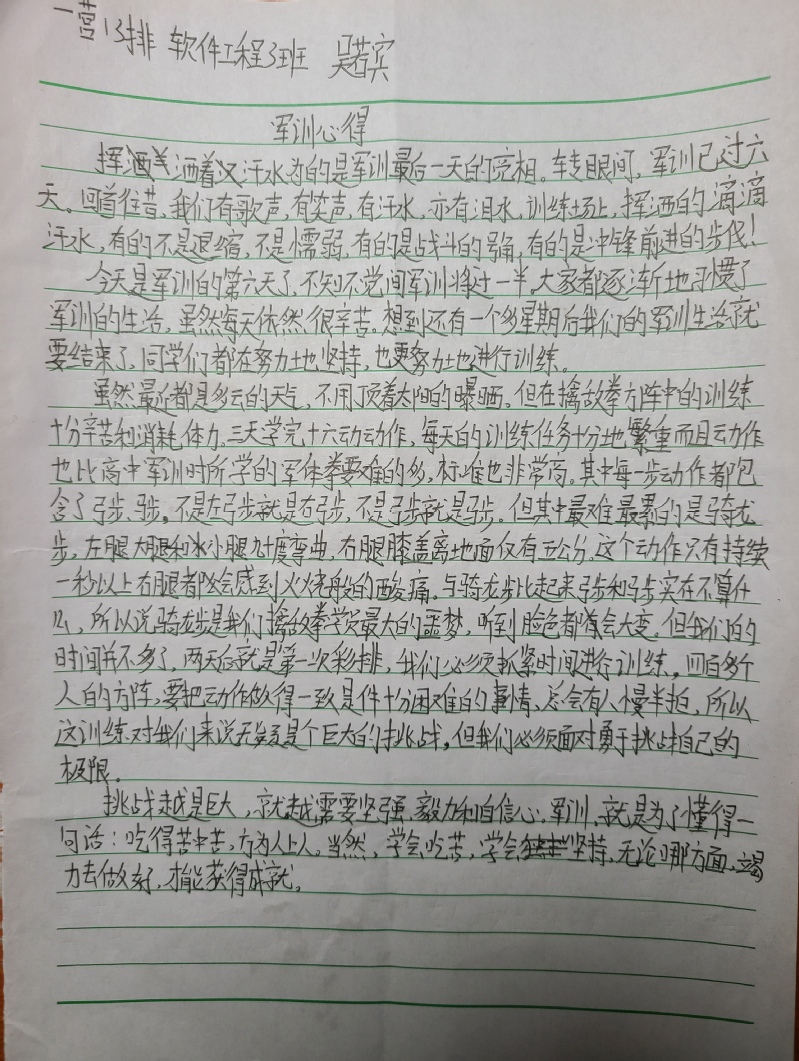 一营13排 软件工程3班 吴若宾
军训心得
挥洒着汗水为的是军训最后一天的亮相。转眼间,军训已过六
天。回首往昔,我们有歌声,有笑声,有汗水,亦有泪水,训练场上,挥洒的滴滴
汗水,有的不是退缩,不是懦弱,有的是战斗的号角,有的是冲锋前进的步伐!
今天是军训的第六天了,不知不觉间军训将过一半,大家都逐渐地习惯了
军训的生活,虽然每天依然很辛苦。想到还有一个多星期后我们的军训生活就
要结束了,同学们都在努力地坚持,也更努力地进行训练。
虽然最近都是多云的天气,不用顶着太阳的曝晒。但在擒敌拳方阵中的训练
十分辛苦和消耗体力。三天学完十六动动作,每天的训练任务十分地繁重而且动作
也比高中军训时所学的军体拳要难的多,标准也非常高。其中每一步动作都包
含了弓步、马步。不是左弓步就是右弓步,不是弓步就是马步。但其中最难最累的是骑龙
步,左腿大腿和小腿九十度弯曲,右腿膝盖离地面仅有五公分。这个动作只有持续
一秒以上右腿都会感到火烧般的酸痛。与骑龙步比起来弓步和马步实在不算什
么,所以说骑龙步是我们擒敌拳学员最大的噩梦,听到脸色都会大变。但我们的
时间并不多了,两天后就是第一次彩排,我们必须抓紧时间进行训练。四百多个
人的方阵,要把动作做得一致是件十分困难的事情、总会有人慢半拍,所以
这训练对我们来说无疑是个巨大的挑战,但我们必须面对勇于挑战自己的
极限。
挑战越是巨大,就越需要坚强、毅力和自信心。军训,就是为了懂得一
句话:吃得苦中苦,方为人上人。当然,学会吃苦,学会坚持,无论哪方面,竭
力去做好,才能获得成就。